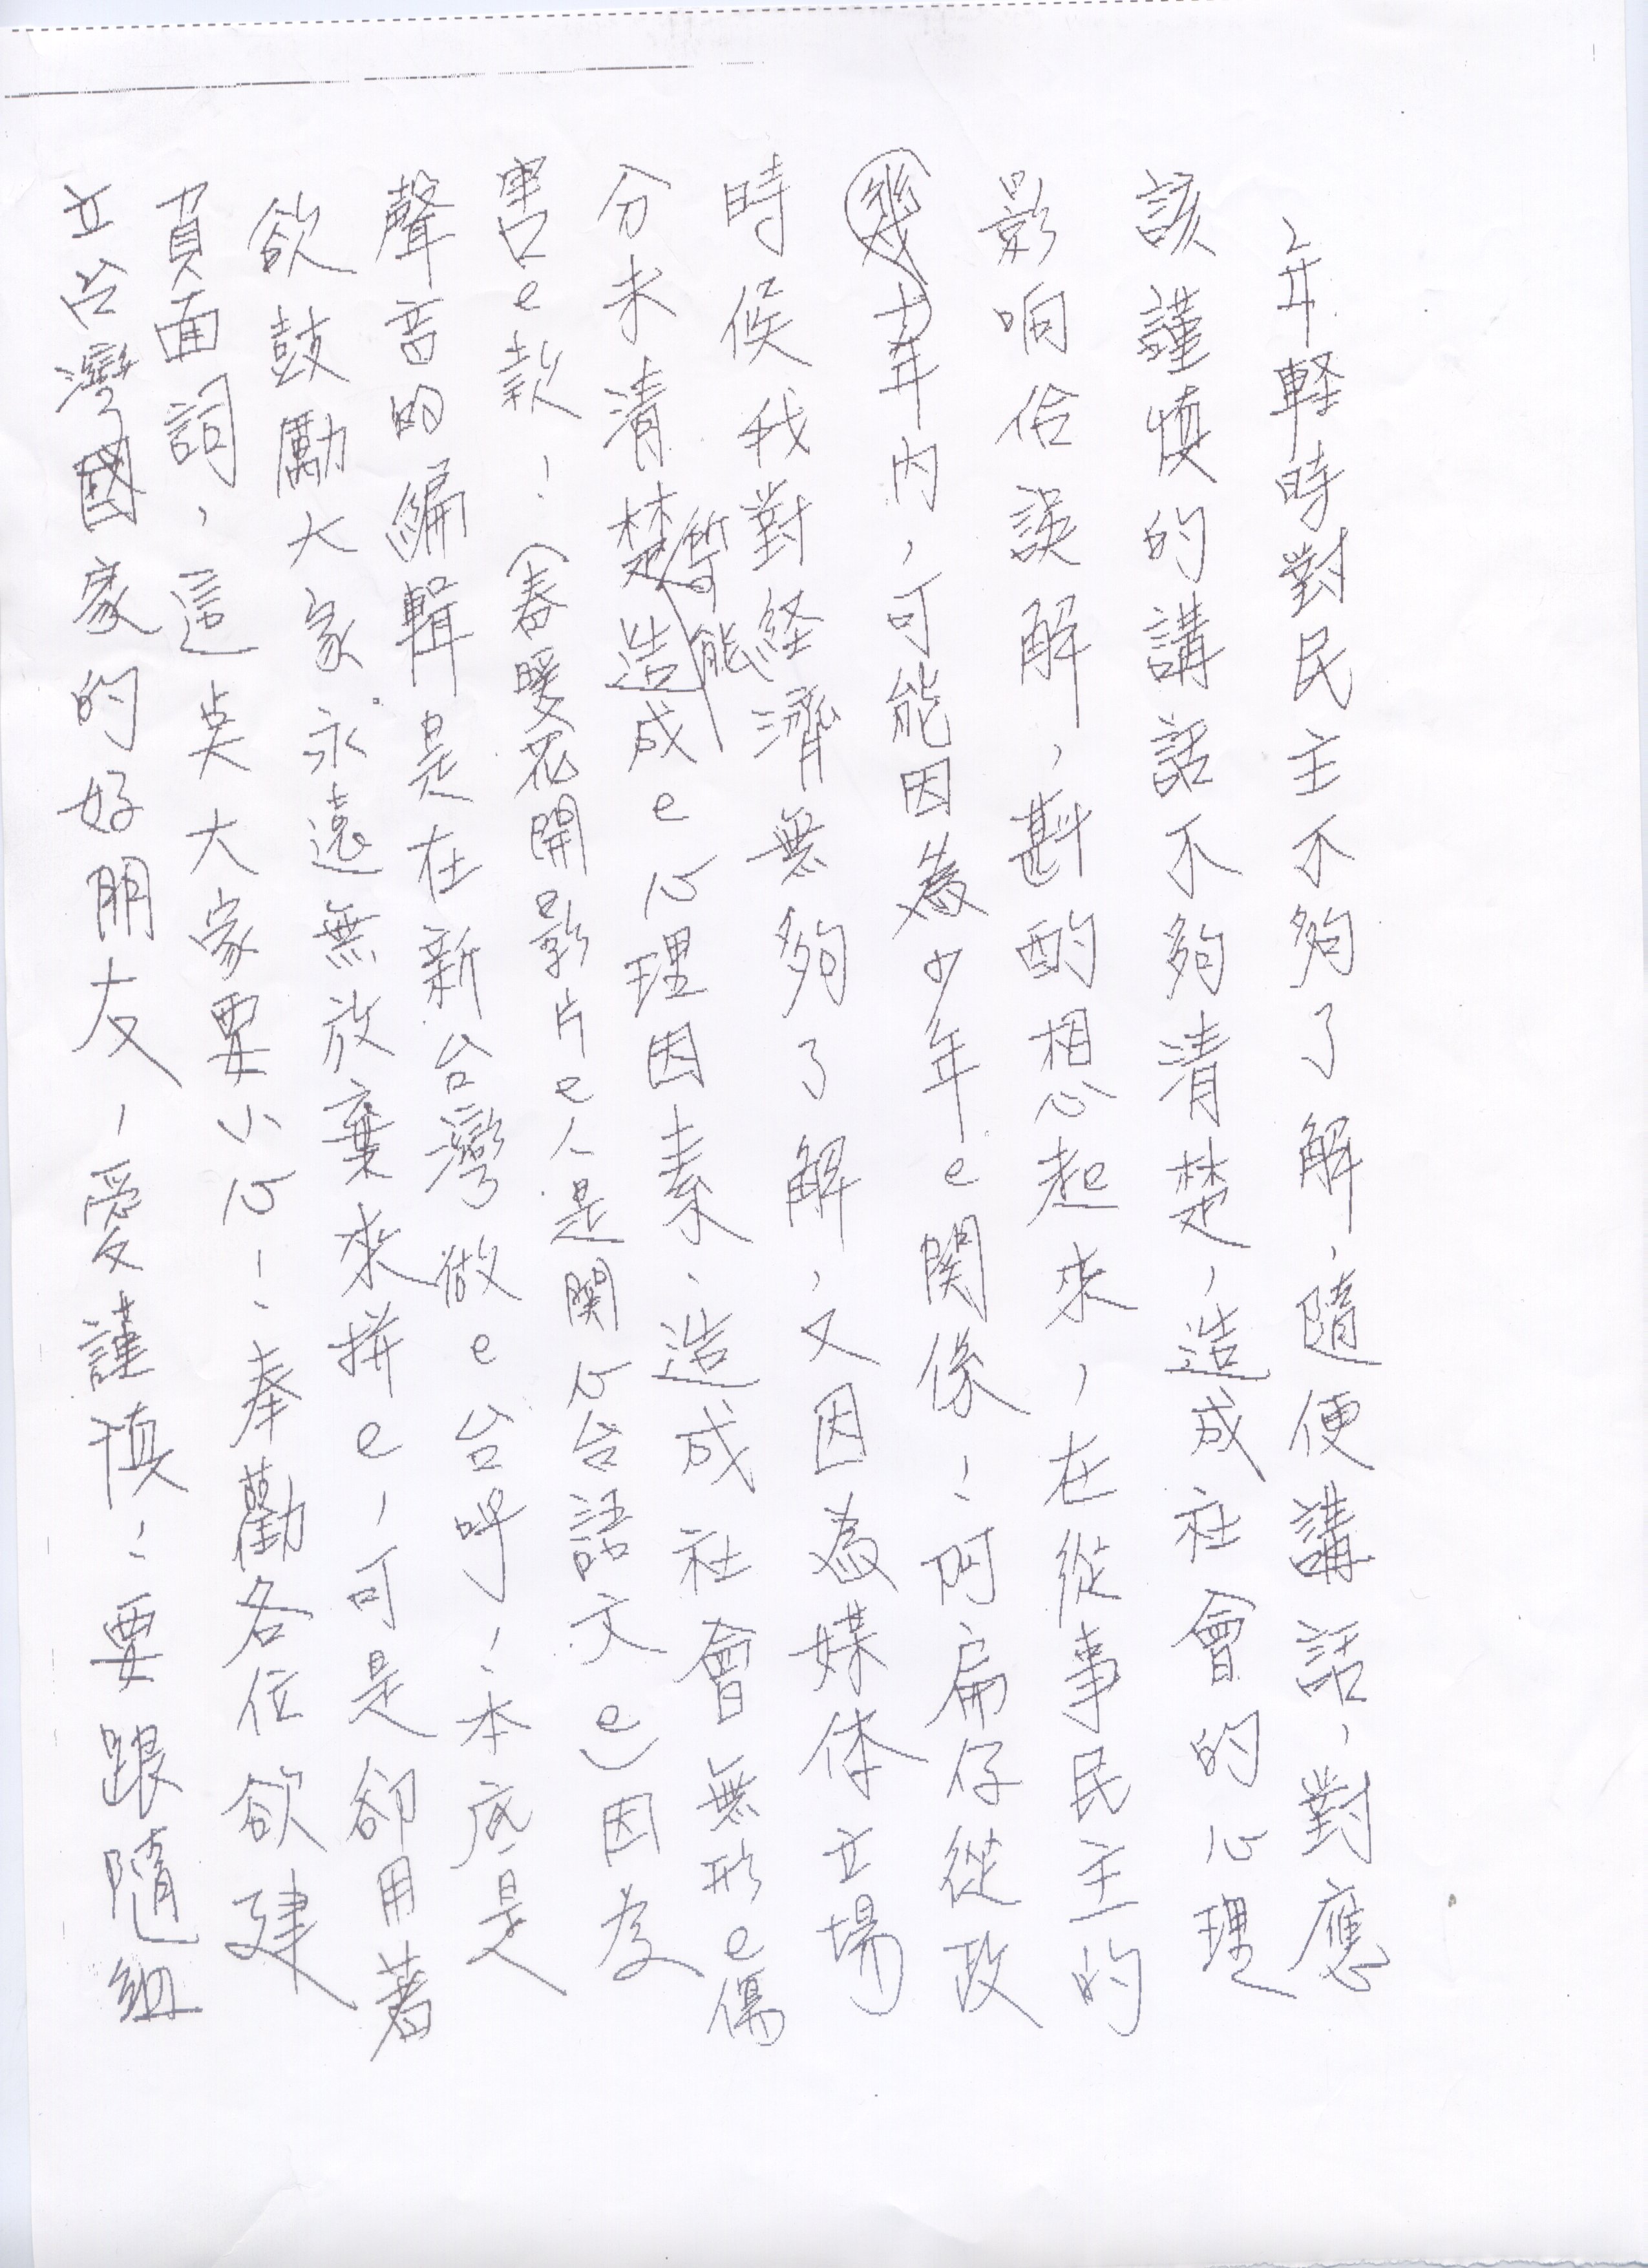 、年輕時對民主不夠了解、隨便講話、對應
該謹慎的講話不夠清楚，造成社會的心理
影响佮誤解，斟酌想起來，在從事民主的
幾十年內，可能因為少年e関係！阿扁仔從政
時候我對経濟無夠了解，又因為媒体立場
分未清楚暫能造成e心理因素、造成社會無形e傷
害e款！（春暖花開影片e人是関心台語文e）因為
聲音的編輯是在新台灣做e台呼，本底是
欲鼓勵大家永遠無放棄來拼e，可是卻用著
負面詞，這莫大家要小心！奉勸各位欲建
立台灣國家的好朋友，愛謹慎！要跟隨組